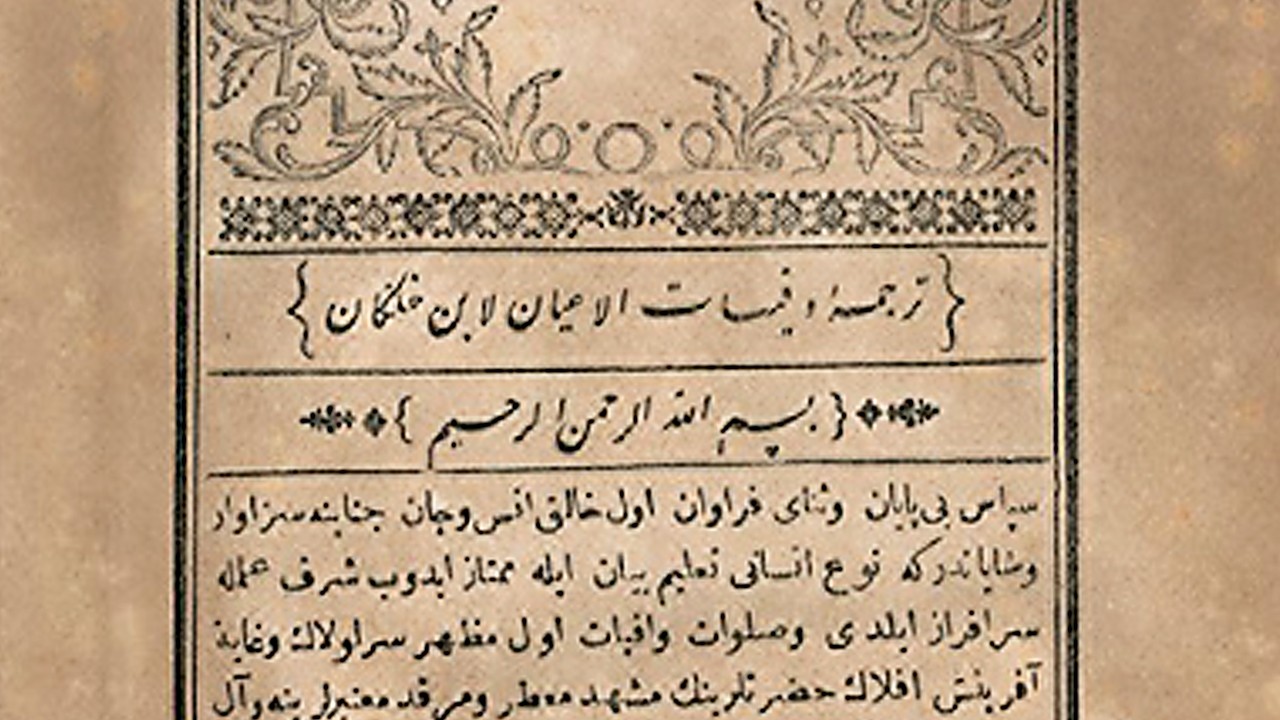 { ترجمهٔ وفيات الاعيان لابن خلكان }
{ بسم الله الرحمن الرحيم }
سپاس بی پایان وثنای فراوان اول خالق انس وجان جنابنه سزاوار
وشایاندرکه نوع انسانی تعلیم بیان ایله ممتاز ایدوب شرف عمله
سرافراز ایلدی وصلوات وافیات اول مظهر سر لولاك وغایة
آفرینش افلاك حضرتلرینك مشهد معطر ومرقد معنبرلرینه وآل